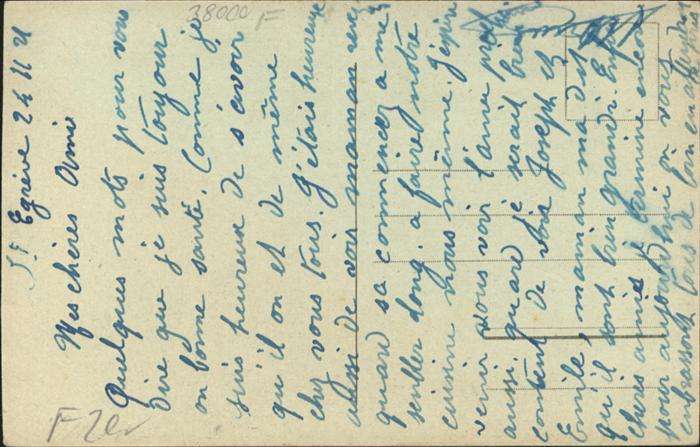 St Egrève 24 11 21
Mes chères Amie
Quelques mots pour vous
dire que je suis toujour
en bonne santé. Comme je
suis heureux de s'avoir
qu'il on et de même
chez vous tous. J'étais heureuse
aussi de voir maman
quare sa commencez a me
sembler long. a faire notre
cuisine nous même j'espère
venir vous voir l'anné
aussi quare je serait bien
content de voir Joseph et
Emile, maman ma dit
qu'il sont bien grandi. Enfin
chers amies je termine encore
pour aujourd'hui en vous
embrassant tous de loin
38000 F
F 2er